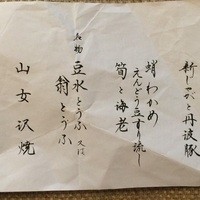 新じゃがと丹波豚
蛸わかめ
えんどう豆すり流し
筍と海老
名物 豆水とうふ 又は
翁とうふ
山女沢焼